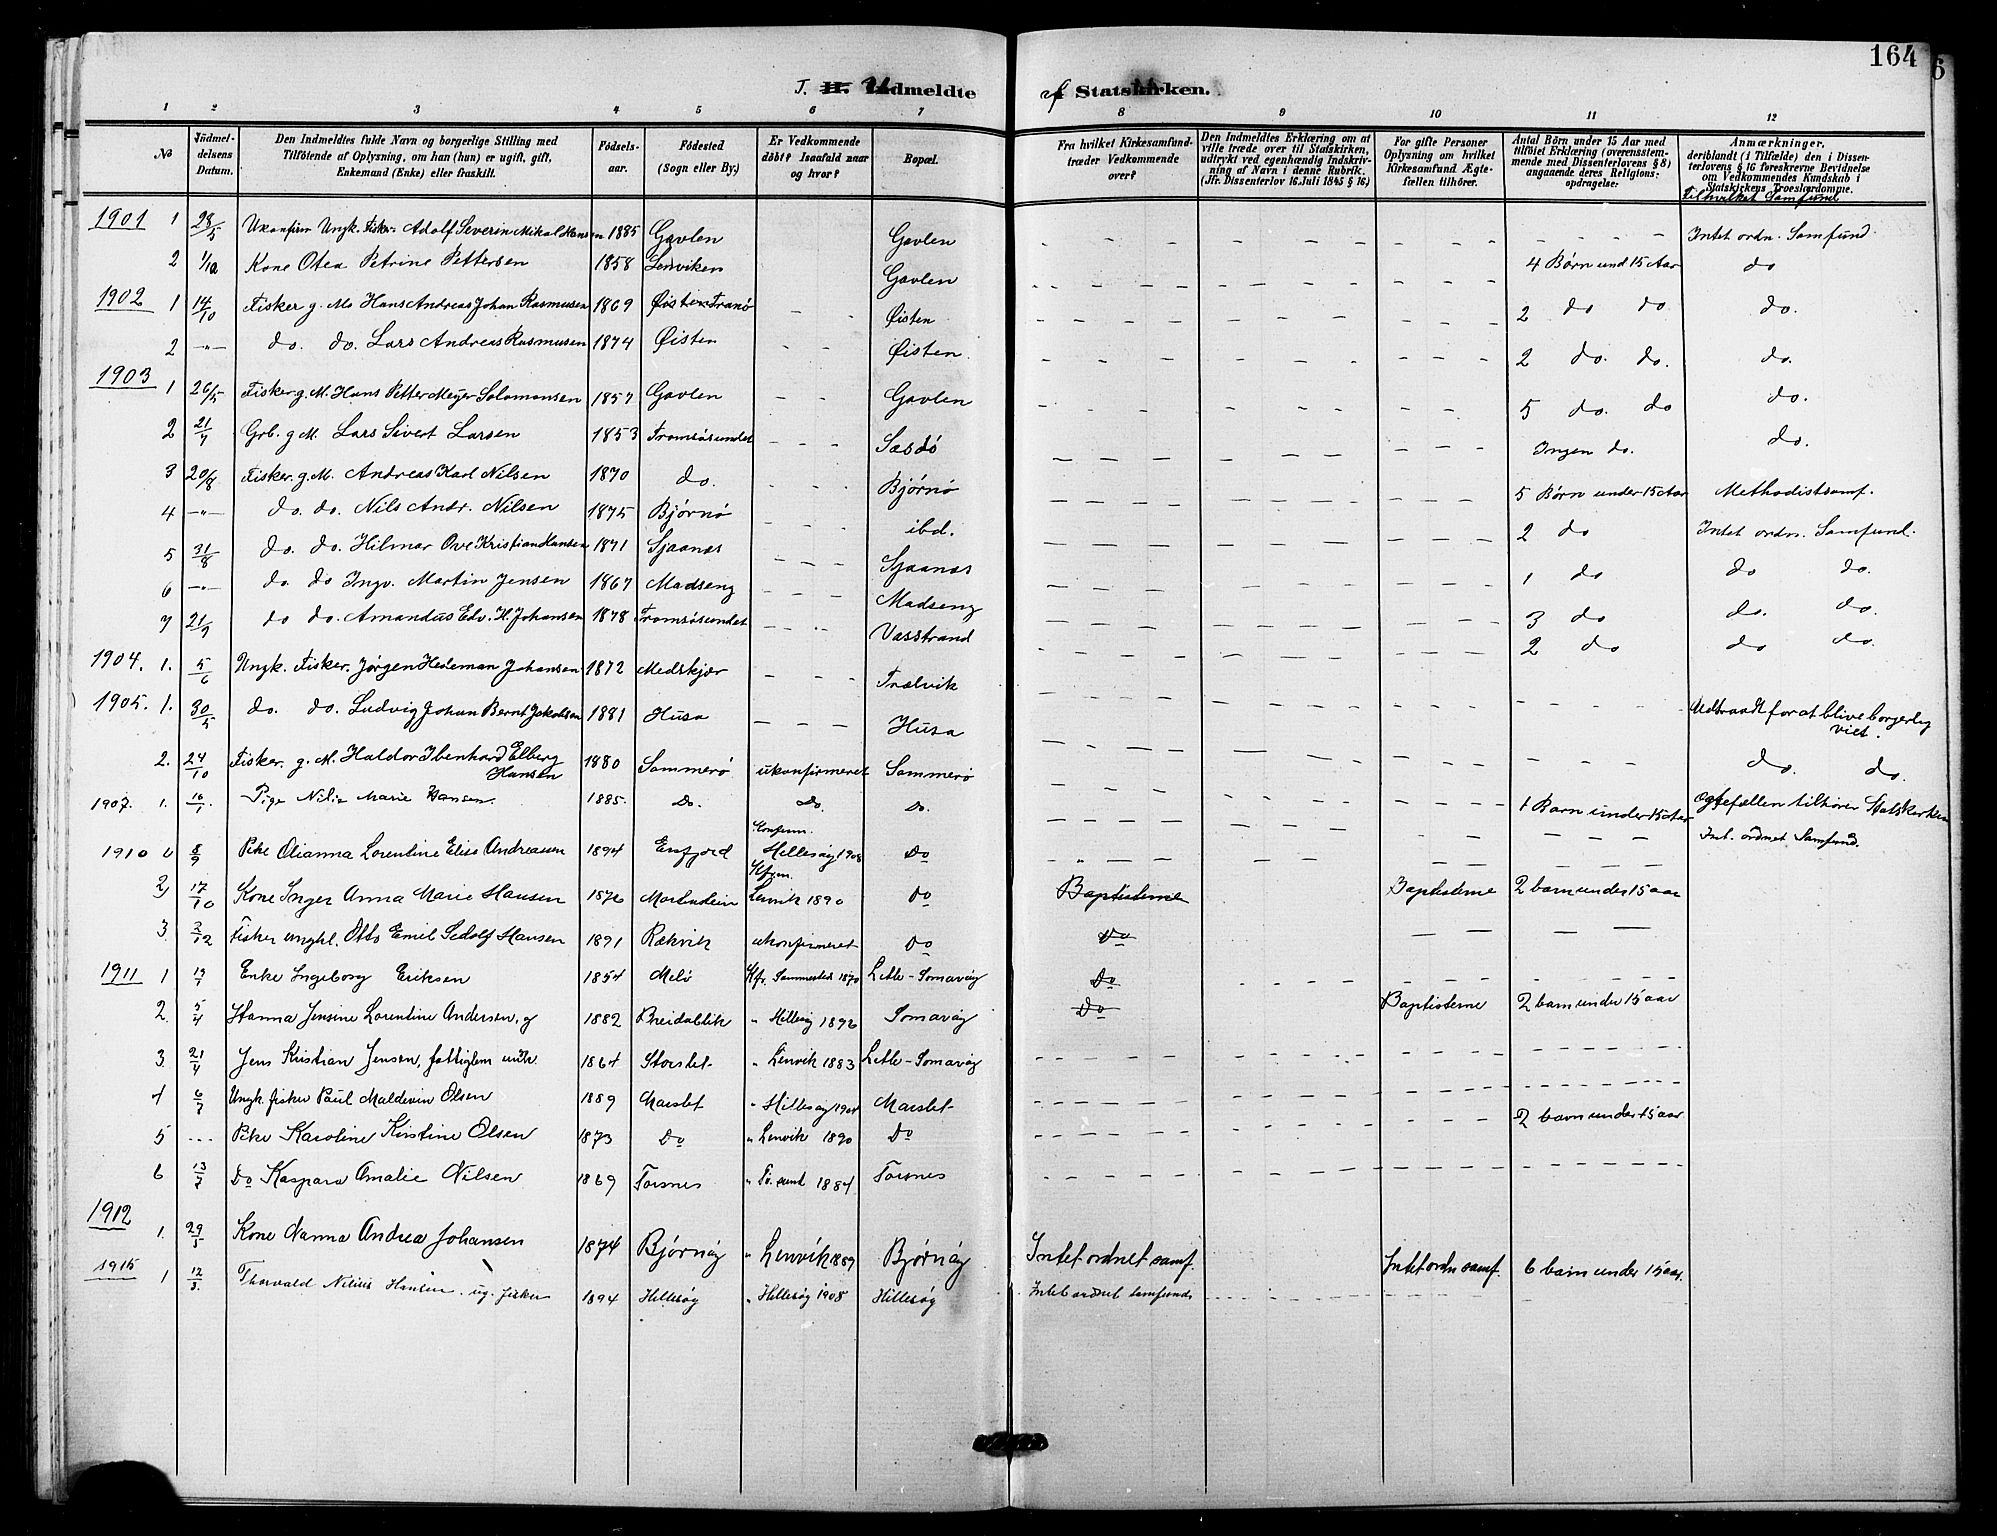 164
6
I. Ud Indmeldte af Statskirken.
1 2 3 4 5 6 7 8 9 10 11 12
No
Indmeldelsens Datum.
Den Indmeldtes fulde Navn og borgerlige Stilling med Tilföiende af Oplysning, om han (hun) er ugift, gift, Enkemand (Enke) eller fraskilt.
Födselsaar.
Födested (Sogn eller By.)
Er Vedkommende döbt? Isaafald naar og hvor?
Bopæl.
Fra hvilket Kirkesamfund træder Vedkommende over?
Den Indmeldtes Erklæring om at ville træde over til Statskirken, udtrykt ved egenhændig Indskrivning af Navn i denne Rubrik. (Jfr. Dissenterlov 16 Juli 1845 § 16)
For gifte Personer Oplysning om hvilket Kirkesamfund Ægtefællen tilhörer.
Antal Börn under 15 Aar med tilföiet Erklæring (overensstemmende med Dissenterlovens § 8) angaaende deres Religionsopdragelse:
Anmærkninger, deriblandt (i Tilfælde) den i Dissenterlovens § 16 foreskrevne Bevidnelse om Vedkommendes Kundskab i Statskirkens Troeslærdomme.
Til hvilket Samfund
1901 1 23/5 Ukonfirm Ungk. Fisker Adolf Severin Mikal Hansen 1885 Gavlen Gavlen Intet ordn. Samfund
2 1/10 Kone Otea Petrine Pettersen 1858 Lenviken Gavlen 4 Børn und 15 Aar do
1902 1 14/10 Fisker g. M. Hans Andreas Johan Rasmusen 1869 Øisten Tranø Øisten 2 do do do.
2 -"- do. do. Lars Andreas Rasmusen 1874 Øisten Øisten. 2 do. do. do.
1903 1 26/5 Fisker g. M. Hans Petter Meyer Salamonsen 1857 Gavlen Gavlen 5 do. do do.
2 21/7 Grb. g M. Lars Sivert Larsen 1853 Tromsøsundet Sasdø Ingen do. do.
3 20/8 Fisker. g. M. Andreas Karl Nilsen 1870 do. Bjørnø 5 Børn under 15 Aar Methodistsamf.
4 -"- do. do. Nils Andr. Nilsen 1875 Bjørnø ibd. 2 do Intet ordn. Samfund.
5 31/8 do. do. Hilmar Ove Kristian Hansen 1871 Sjaanæs Sjaanæs 1 do do do.
6 -"- do. do Ingv. Martin Jensen 1867 Madseng Madseng 3 do do. do.
7 21/9 do do. Amandus Edv. H. Johansen 1878 Tromsøsundet Vasstrand 2 do do do.
1904. 1. 5/6 Ungk. Fisker. Jørgen Hedeman Johansen 1872 Medskjær Trælvik
1905. 1. 30/5 do. do. Ludvig Johan Bernt Jakobsen 1881 Husa Husa Udtraadt for at blive borgerlig viet.
2. 24/10 Fisker. g. M. Haldor Ibenhard Elberg Hansen 1880 Sommerø ukonfirmeret Sommerø do. do.
1907. 1. 16/1 Pige Nilia Marie Hansen. 1885. Do. Do. Do. 1 Barn under 15 Aar Ægtefællen tilhører Statskirken
1910 1) 8/9 Pike Olianna Lorentine Elise Andreassen 1894 Ersfjord Konfirm. Hillesøy 1908 Do " Int. ordnet Samfund.
2) 17/10 Kone Inger Anna Marie Hansen 1876 Kfrm. Lenvik 1890 Do Baptisterne Baptisterne 2 barn under 15 aar
3. 2/12 Fisker ungkl. Otto Emil Sedolf Hansen 1891 Rækvik ukonfirmeret Do Do
1911 1 13/1 Enke Ingeborg Eriksen 1854 Melö Kfr. 1870 Litle-Somavåg Do
2. 5/4 Hanna Jensine Lorentine Andersen, g 1882 Breidablik " Hillesøy 1896 Somavåg Do Baptisterne 2 barn under 15 aar
3. 21/4 Jens Kristian Jensen, fattiglem 1864 Storslet " Lenvik 1883 Litle-Somavåg
4 6/7 Ungk. fisker Paul Malderin Olsen 1889 Marslet " Hillesøy 1904 Marslet
5 ... Pike Karoline Kirstine Olsen 1873 Do " Lenvik 1890 Do 2 barn under 15 aar
6 13/7 Do Kaspara Amalie Nilsen 1869 Torsnes " Tr. sund 1884 Torsnes
1912
1. 29/5 Kone Nanna Andrea Johansen 1874 Bjørnøy " Lenvik 1889 Bjørnøy Intet ordnet samf. Intet ordn samf. 6 barn under 15 aar.
1915 1 12/3. Thorvald Nilius Hansen ug. fisker 1894 Hillesøy " Hillesøy 1908 Hillesøy Intet ordnet samfund